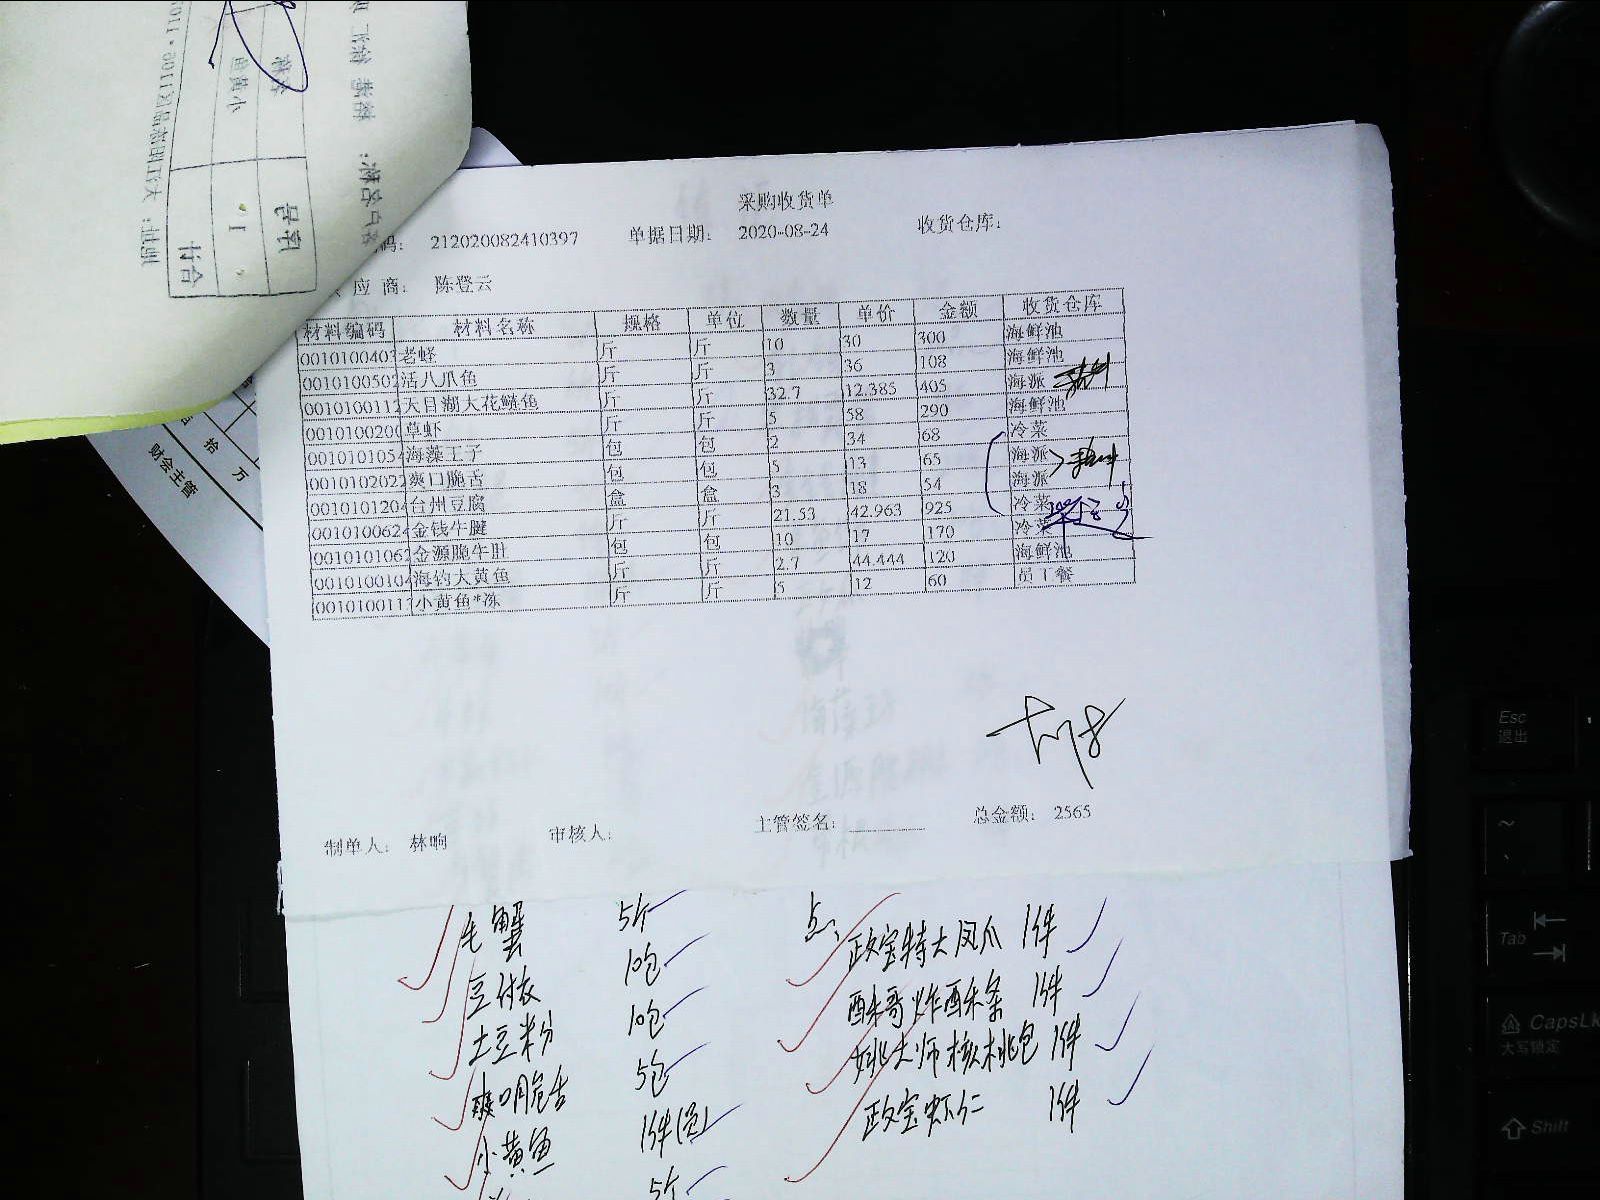 采购收货单
码： 212020082410397 单据日期： 2020-08-24 收货仓库：
应 商： 陈登云
材料编码 材料名称 规格 单位 数量 单价 金额 收货仓库
001010040 老蛏 斤 斤 10 30 300 海鲜池
001010050 活八爪鱼 斤 斤 3 36 108 海鲜池
001010011 天目湖大花鲢鱼 斤 斤 32.7 12.385 405 海派
001010020 草虾 斤 斤 5 58 290 海鲜池
001010105 海藻王子 包 包 2 34 68 冷菜
001010202 爽口脆舌 包 包 5 13 65 海派
001010120 台州豆腐 盒 盒 3 18 54 海派
001010062 金钱牛腱 斤 斤 21.53 42.963 925 冷菜
001010106 金源脆牛肚 包 包 10 17 170 冷菜
001010010 海钓大黄鱼 斤 斤 2.7 44.444 120 海鲜池
001010011 小黄鱼*冻 斤 斤 5 12 60 员工餐
制单人： 林响 审核人： 主管签名： 总金额： 2565
毛蟹 5斤
豆付衣 10包
土豆粉 10包
爽口脆舌 5包
小黄鱼 1件(员)
5斤
点：
政宝特大凤爪 1件
酥哥炸酥条 1件
姚大师核桃包 1件
政宝虾仁 1件
拾 万
财会主管
Esc
退出
Tab
CapsLk
大写锁定
Shift